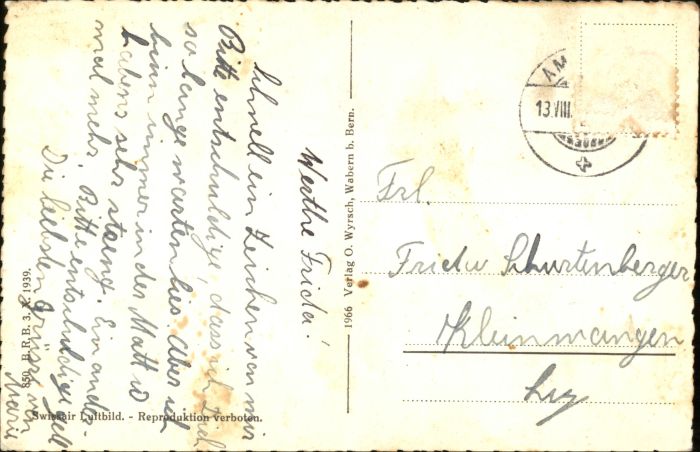 Werthe Frida!
Schnell ein Zeichen von mir
Bitte entschuldige, dass ich Dich
so lange warten lies aber ich
binn immer in der Matt wo
habens sehr streng. Ein ander-
mal mehr. Bitte entschuldige
Die liebsten Grüsse von
Marie
850 B. R. B. 3. X. 1939.
Swissair Luftbild. - Reproduktion verboten.
1966 Verlag O. Wyrsch, Wabern b. Bern.
AM
13.VIII.
Frl.
Frida Schurtenberger
Kleinwangen
Luz